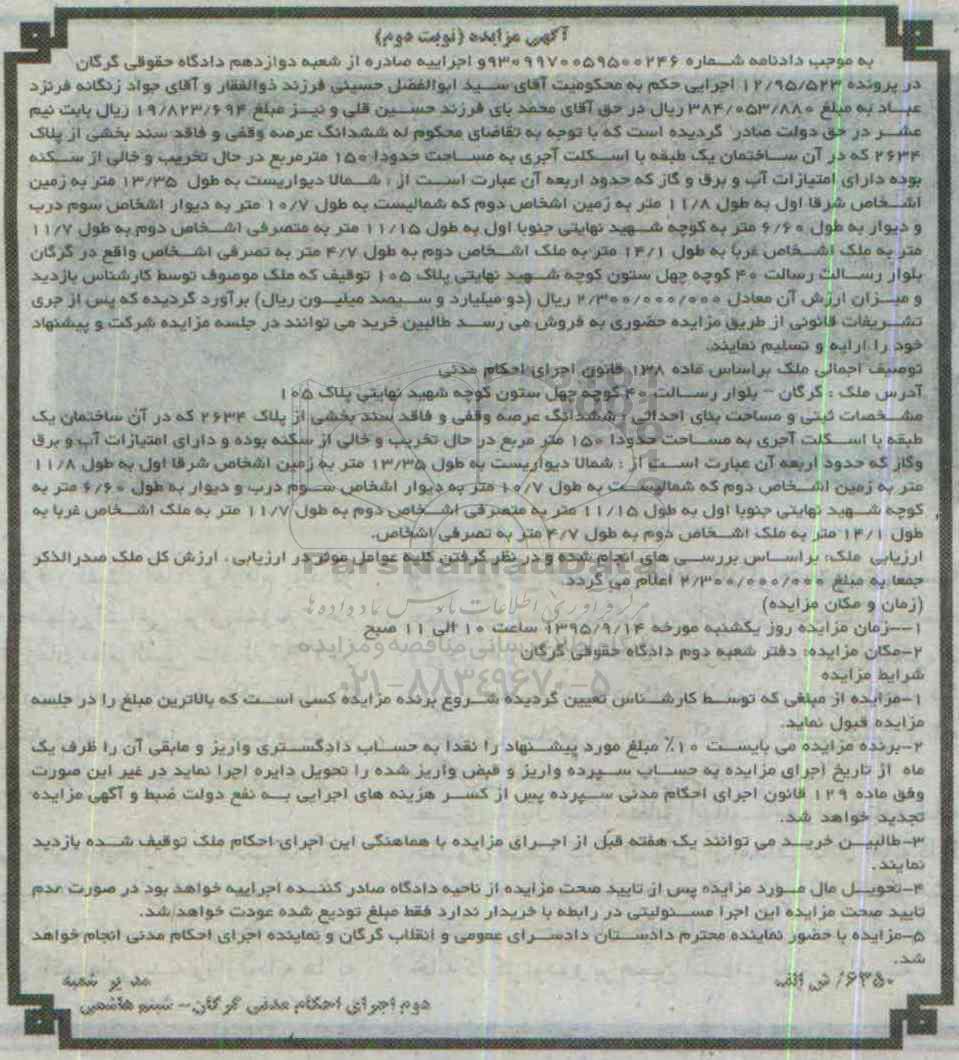 آگهی مزایده (نوبت دوم)
به موجب دادنامه شماره ۹۳۰۹۹۷۰۰۵۹۵۰۰۲۴۶و اجراییه صادره از شعبه دوازدهم دادگاه حقوقی گرگان
در پرونده ۱۲/۹۵/۵۲۳ اجرایی حکم به محکومیت آقای سید ابوالفضل حسینی فرزند ذوالفقار و آقای جواد زنگانه فرنزد
عباد به مبلغ ۳۸۴/۰۵۳/۸۸۰ ریال در حق آقای محمد بای فرزند حسین قلی و نیز مبلغ ۱۹/۸۲۳/۶۹۴ ریال بابت نیم
عشر در حق دولت صادر گردیده است که با توجه به تقاضای محکوم له ششدانگ عرصه وقفی و فاقد سند بخشی از پلاک
۲۶۳۴ که در آن ساختمان یک طبقه با اسکلت آجری به مساحت حدودا ۱۵۰ مترمربع در حال تخریب و خالی از سکنه
بوده دارای امتیازات آب و برق و گاز که حدود اربعه آن عبارت است از : شمالا دیواریست به طول ۱۳/۳۵ متر به زمین
اشخاص شرقا اول به طول ۱۱/۸ متر به زمین اشخاص دوم که شمالیست به طول ۱۰/۷ متر به دیوار اشخاص سوم درب
و دیوار به طول ۶/۶۰ متر به کوچه شهید نهایتی جنوبا اول به طول ۱۱/۱۵ متر به متصرفی اشخاص دوم به طول ۱۱/۷
متر به ملک اشخاص غربا به طول ۱۴/۱ متر به ملک اشخاص دوم به طول ۴/۷ متر به تصرفی اشخاص واقع در گرگان
بلوار رسالت رسالت ۴۰ کوچه چهل ستون کوچه شهید نهایتی پلاک ۱۰۵ توقیف که ملک موصوف توسط کارشناس بازدید
و میزان ارزش آن معادل ۲/۳۰۰/۰۰۰/۰۰۰ ریال (دو میلیارد و سیصد میلیون ریال) برآورد گردیده که پس از جری
تشریفات قانونی از طریق مزایده حضوری به فروش می رسد طالبین خرید می توانند در جلسه مزایده شرکت و پیشنهاد
خود را ارایه و تسلیم نمایند.
توصیف اجمالی ملک براساس ماده ۱۳۸ قانون اجرای احکام مدنی
آدرس ملک : گرگان – بلوار رسالت ۴۰ کوچه چهل ستون کوچه شهید نهایتی پلاک ۱۰۵
مشخصات ثبتی و مساحت بنای احداثی : ششدانگ عرصه وقفی و فاقد سند بخشی از پلاک ۲۶۳۴ که در آن ساختمان یک
طبقه با اسکلت آجری به مساحت حدودا ۱۵۰ متر مربع در حال تخریب و خالی از سکنه بوده و دارای امتیازات آب و برق
وگاز که حدود اربعه آن عبارت است از : شمالا دیواریست به طول ۱۳/۳۵ متر به زمین اشخاص شرقا اول به طول ۱۱/۸
متر به زمین اشخاص دوم که شمالیست به طول ۱۰/۷ متر به دیوار اشخاص سوم درب و دیوار به طول ۶/۶۰ متر به
کوچه شهید نهایتی جنوبا اول به طول ۱۱/۱۵ متر به متصرفی اشخاص دوم به طول ۱۱/۷ متر به ملک اشخاص غربا به
طول ۱۴/۱ متر به ملک اشخاص دوم به طول ۴/۷ متر به تصرفی اشخاص.
ارزیابی ملک: براساس بررسی های انجام شده و در نظر گرفتن کلیه عوامل موثر در ارزیابی ، ارزش کل ملک صدرالذکر
جمعا به مبلغ ۲/۳۰۰/۰۰۰/۰۰۰ اعلام می گردد.
ParsNamadData
مرکز فرآوری اطلاعات پارس نماد داده ها
(زمان و مکان مزایده)
۱--زمان مزایده روز یکشنبه مورخه ۱۳۹۵/۹/۱۴ ساعت ۱۰ الی ۱۱ صبح
۲-مکان مزایده: دفتر شعبه دوم دادگاه حقوقی گرگان
رسانی مناقصه و مزایده
شرایط مزایده
۰۲۱-۸۸۳۴۹۶۷۰-۵
۱-مزایده از مبلغی که توسط کارشناس تعیین گردیده شروع برنده مزایده کسی است که بالاترین مبلغ را در جلسه
مزایده قبول نماید.
۲-برنده مزایده می بایست ۱۰٪ مبلغ مورد پیشنهاد را نقدا به حساب دادگستری واریز و مابقی آن را ظرف یک
ماه از تاریخ اجرای مزایده به حساب سپرده واریز و قبض واریز شده را تحویل دایره اجرا نماید در غیر این صورت
وفق ماده ۱۲۹ قانون اجرای احکام مدنی سپرده پس از کسر هزینه های اجرایی به نفع دولت ضبط و آگهی مزایده
تجدید خواهد شد.
۳-طالبین خرید می توانند یک هفته قبل از اجرای مزایده با هماهنگی این اجرای احکام ملک توقیف شده بازدید
نمایند.
۴-تحویل مال مورد مزایده پس از تایید صحت مزایده از ناحیه دادگاه صادر کننده اجراییه خواهد بود در صورت عدم
تایید صحت مزایده این اجرا مسئولیتی در رابطه با خریدار ندارد فقط مبلغ تودیع شده عودت خواهد شد.
۵-مزایده با حضور نماینده محترم دادستان دادسرای عمومی و انقلاب گرگان و نماینده اجرای احکام مدنی انجام خواهد
شد.
۶۳۵۰/ش الف
مدیر شعبه
دوم اجرای احکام مدنی گرگان- شبنم هاشمی